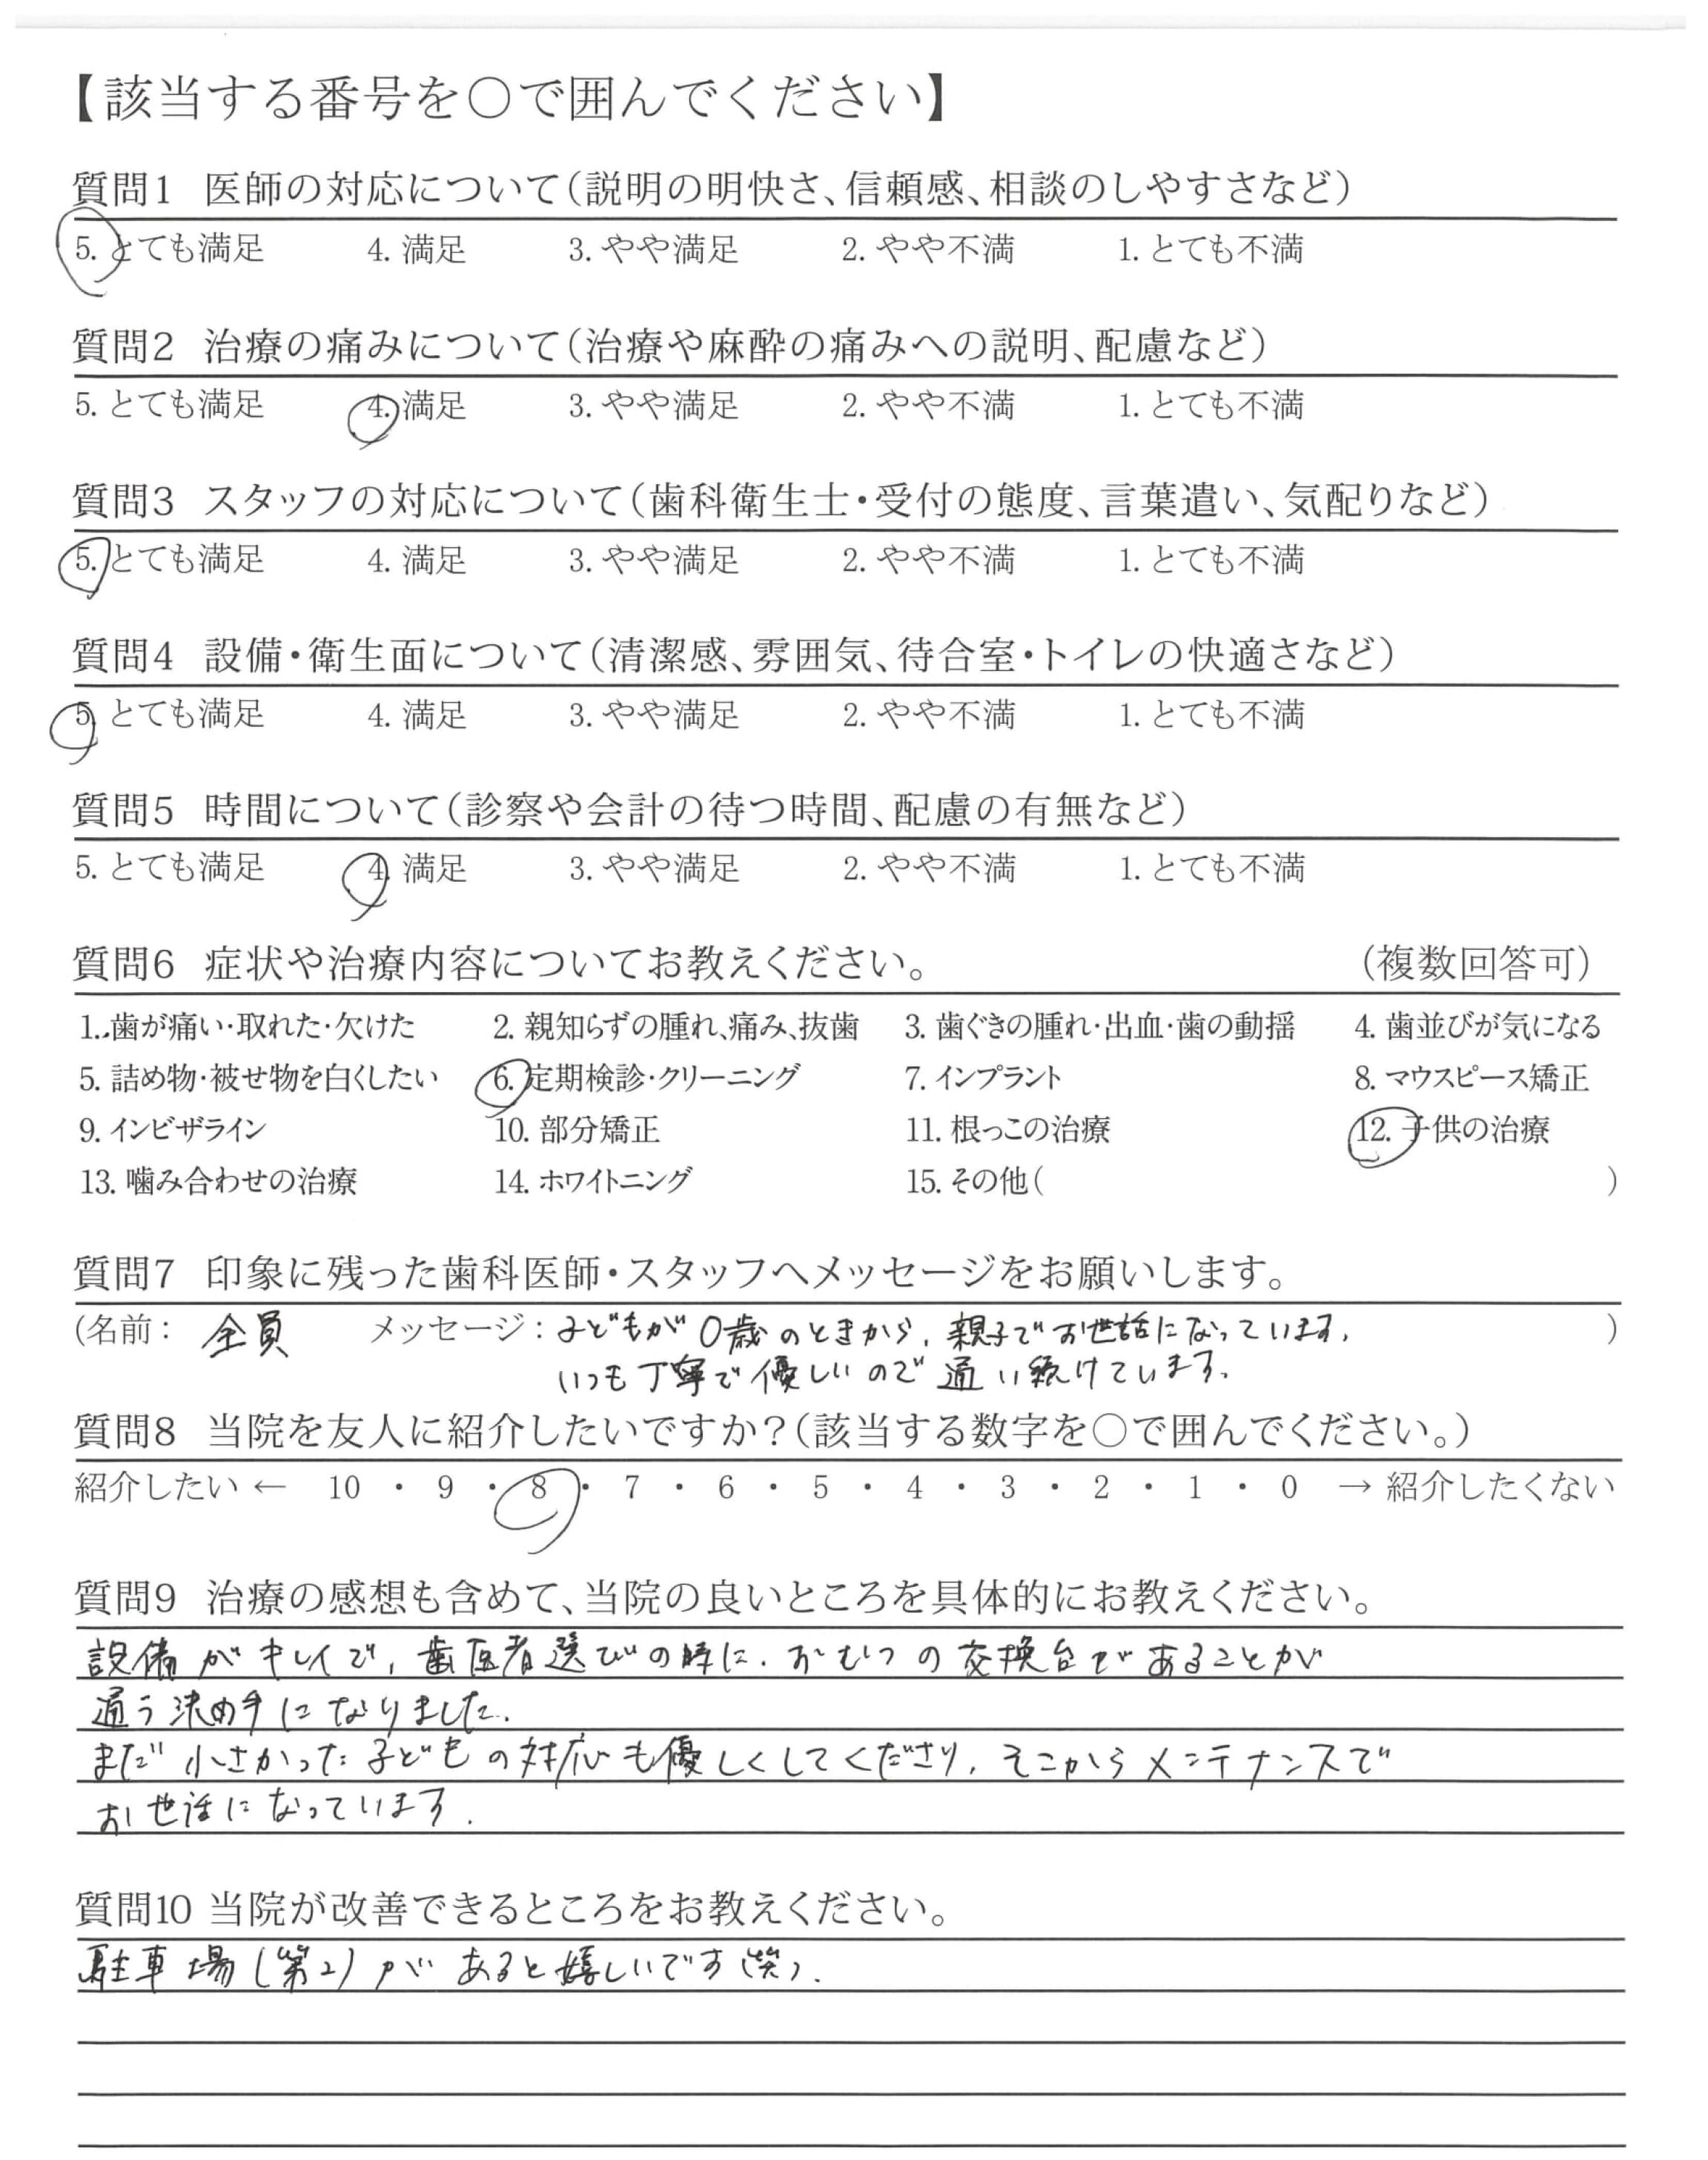 【該当する番号を〇で囲んでください】
質問1 医師の対応について(説明の明快さ、信頼感、相談のしやすさなど)
5. とても満足 4. 満足 3. やや満足 2. やや不満 1. とても不満
質問2 治療の痛みについて(治療や麻酔の痛みへの説明、配慮など)
5. とても満足 4. 満足 3. やや満足 2. やや不満 1. とても不満
質問3 スタッフの対応について(歯科衛生士・受付の態度、言葉遣い、気配りなど)
5. とても満足 4. 満足 3. やや満足 2. やや不満 1. とても不満
質問4 設備・衛生面について(清潔感、雰囲気、待合室・トイレの快適さなど)
5. とても満足 4. 満足 3. やや満足 2. やや不満 1. とても不満
質問5 時間について(診察や会計の待つ時間、配慮の有無など)
5. とても満足 4. 満足 3. やや満足 2. やや不満 1. とても不満
質問6 症状や治療内容についてお教えください。 (複数回答可)
1. 歯が痛い・取れた・欠けた 2. 親知らずの腫れ、痛み、抜歯 3. 歯ぐきの腫れ・出血・歯の動揺 4. 歯並びが気になる
5. 詰め物・被せ物を白くしたい 6. 定期検診・クリーニング 7. インプラント 8. マウスピース矯正
9. インビザライン 10. 部分矯正 11. 根っこの治療 12. 子供の治療
13. 噛み合わせの治療 14. ホワイトニング 15. その他( )
質問7 印象に残った歯科医師・スタッフへメッセージをお願いします。
(名前： 全員 メッセージ：子どもが0歳のときから、親子でお世話になっています。 )
いつも丁寧で優しいので通い続けています。
質問8 当院を友人に紹介したいですか？(該当する数字を〇で囲んでください。)
紹介したい ← 10 ・ 9 ・ 8 ・ 7 ・ 6 ・ 5 ・ 4 ・ 3 ・ 2 ・ 1 ・ 0 → 紹介したくない
質問9 治療の感想も含めて、当院の良いところを具体的にお教えください。
設備がキレイで、歯医者選びの時に、おむつの交換台があることが
通う決め手になりました。
まだ小さかった子どもの対応も優しくしてくださり、そこからメンテナンスで
お世話になっています。
質問10 当院が改善できるところをお教えください。
駐車場(第2)があると嬉しいです(笑)。